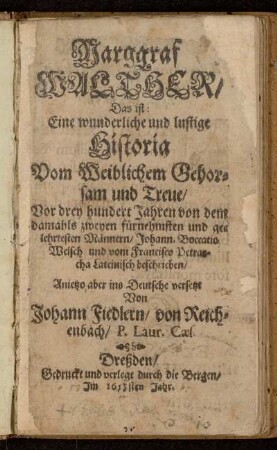 Marggraf
WALTHER/
Das ist:
Eine wunderliche und lustige
Historia
Vom Weiblichem Gehor-
sam und Treue/
Vor drey hundert Jahren von dem
damahls zweyen fürnehmsten und ge-
lehrtesten Männern/ Johann. Boccatio
Welsch und vom Francisco Petrar-
cha Lateinisch beschrieben/
Anietzo aber ins Deutsche versetzt
Von
Johann Fiedlern/ von Reich-
enbach/ P. Laur. Cæl.
Dreßden/
Gedruckt und verlegt durch die Bergen/
Im 1653sten Jahr.